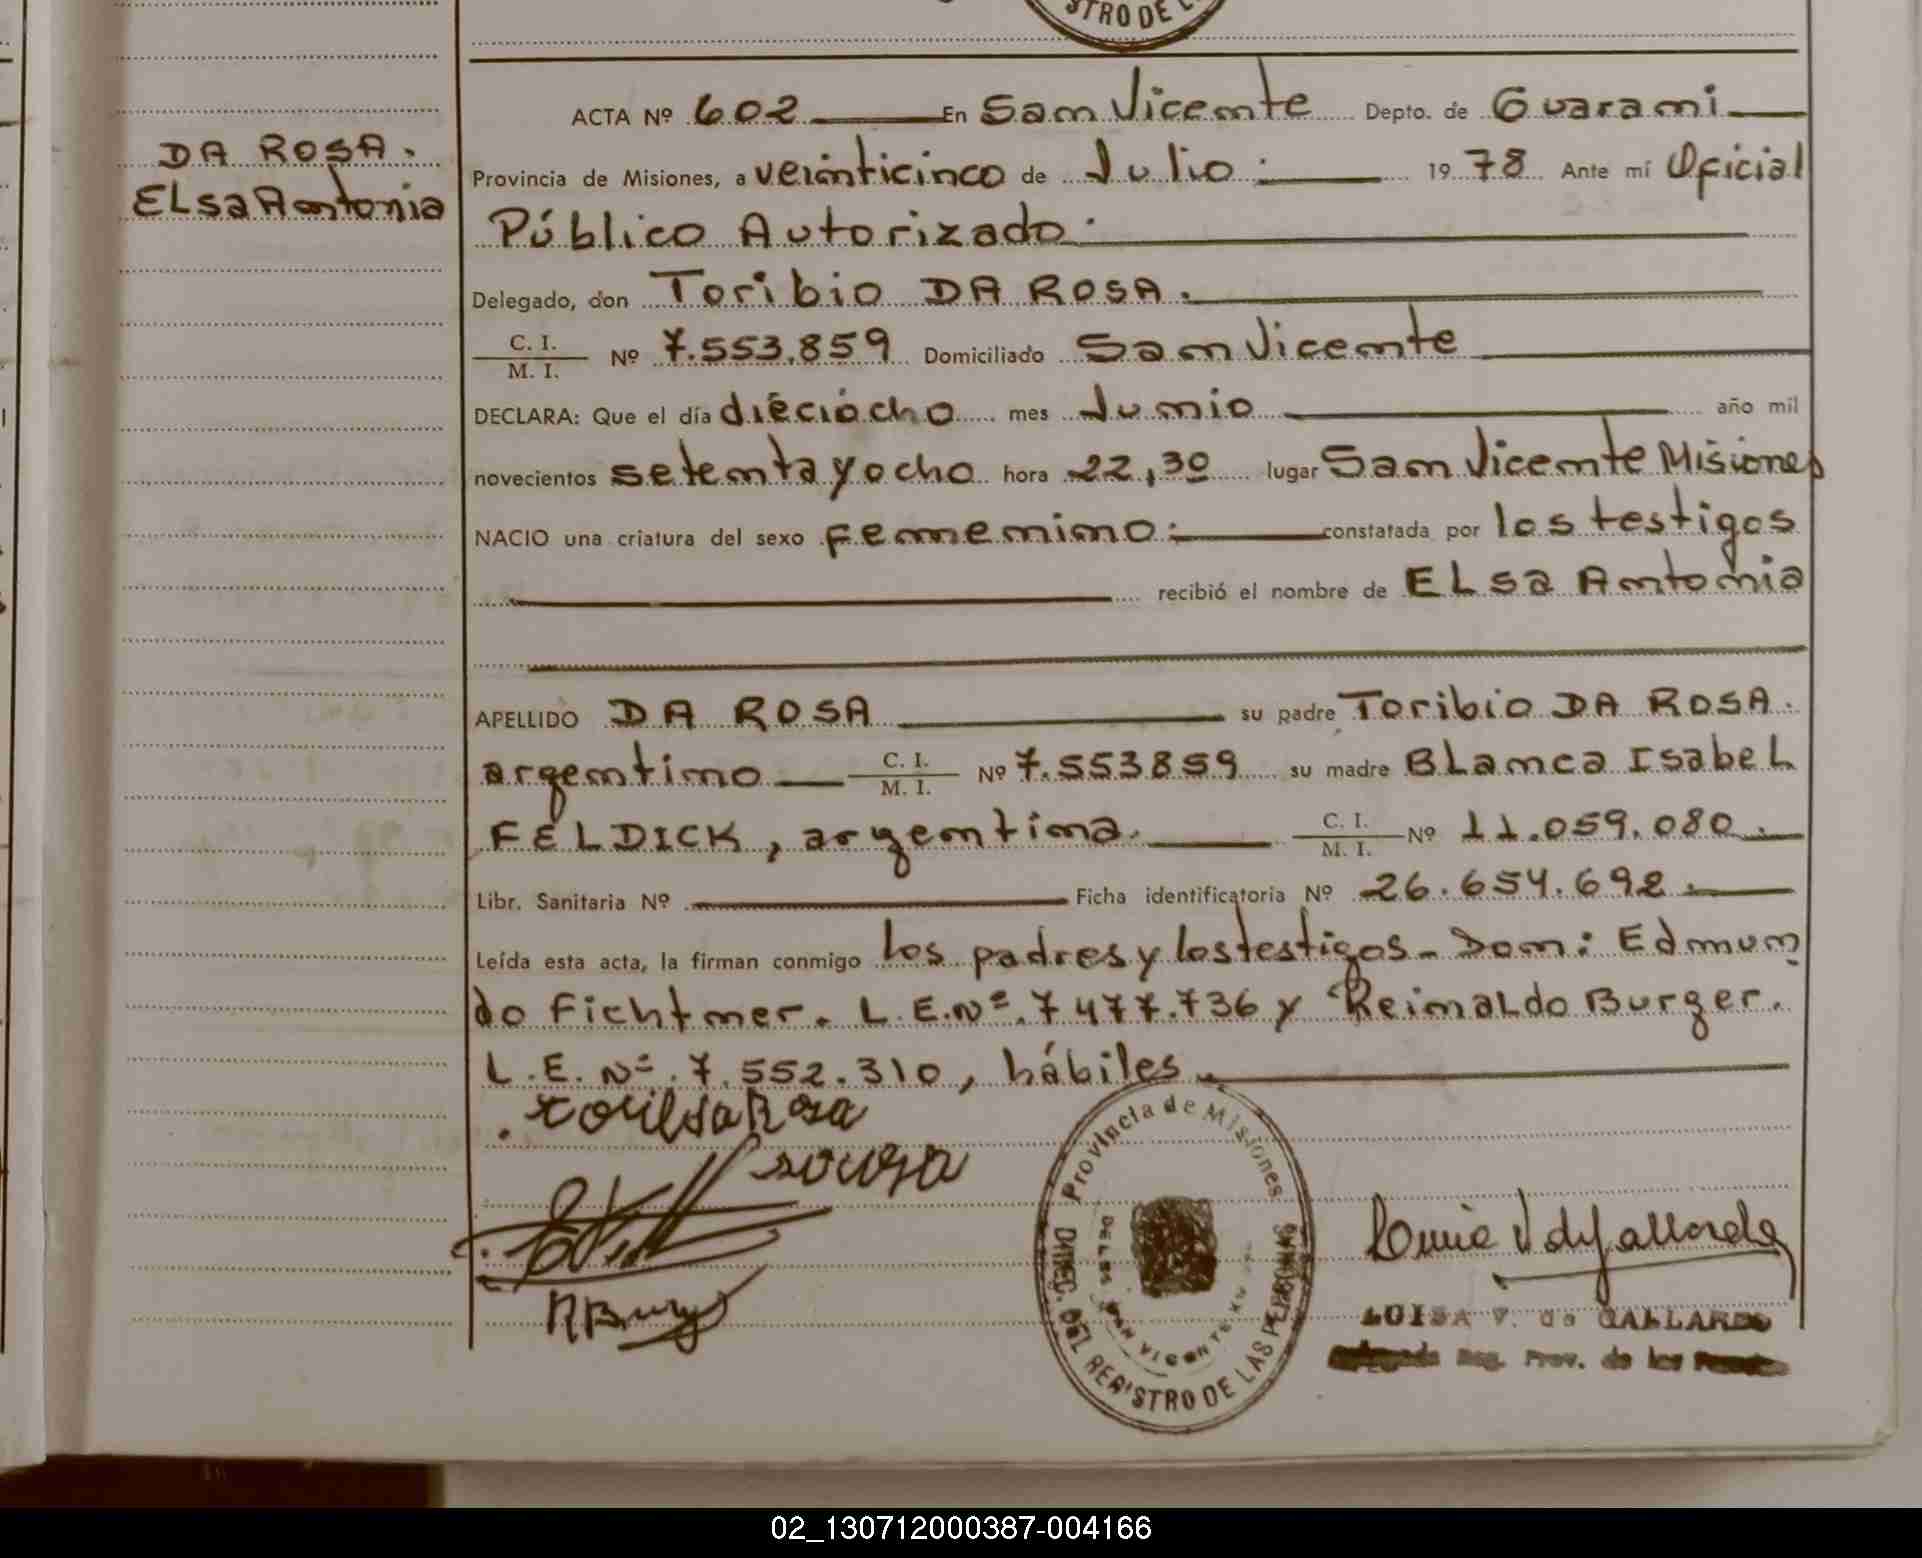 STRO DE L
DA ROSA.
ELsa Antonia
ACTA Nº 602 En San Vicente Depto. de Guarani
Provincia de Misiones, a veinticinco de Julio: 1978 Ante mí Oficial
Público Autorizado.
Delegado, don Toribio DA ROSA.
C. I.
M. I. Nº 7.553.859 Domiciliado San Vicente
DECLARA: Que el día dieciocho mes Junio año mil
novecientos setenta y ocho hora 22,30 lugar San Vicente Misiones
NACIO una criatura del sexo femenino: constatada por los testigos
recibió el nombre de ELsa Antonia
APELLIDO DA ROSA su padre Toribio DA ROSA.
argentino C. I. M. I. Nº 7.553859 su madre BLanca IsabeL
FELDICK, argentina. C. I. M. I. Nº 11.059.080.
Libr. Sanitaria Nº Ficha identificatoria Nº 26.654.692.
Leída esta acta, la firman conmigo los padres y los testigos- Don: Edmun
do Fichtner. L.E.Nº. 7477.736 y ReinaLdo Burger.
L.E. Nº.7.552.310, hábiles.
Provincia de Misiones
DIREC. DEL REGISTRO DE LAS PERSONAS
SAN VICENTE
R Burger
LUISA V. de GALLARDO
Reg. Prov. de las
02_130712000387-004166